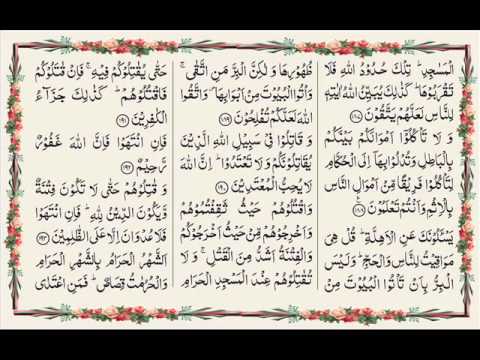 الْمَسٰجِدِ ؕ تِلْكَ حُدُوْدُ اللّٰهِ فَلَا
تَقْرَبُوْهَا ؕ كَذٰلِكَ يُبَيِّنُ اللّٰهُ اٰيٰتِهٖ
لِلنَّاسِ لَعَلَّهُمْ يَتَّقُوْنَ ﴿۱۸۷﴾
وَ لَا تَاْكُلُوْۤا اَمْوَالَكُمْ بَيْنَكُمْ
بِالْبَاطِلِ وَتُدْلُوْا بِهَاۤ اِلَى الْحُكَّامِ
لِتَاْكُلُوْا فَرِيْقًا مِّنْ اَمْوَالِ النَّاسِ
بِالْاِثْمِ وَاَنْتُمْ تَعْلَمُوْنَ ﴿۱۸۸﴾
يَسْـَٔلُوْنَكَ عَنِ الْاَهِلَّةِ ؕ قُلْ هِىَ
مَوَاقِيْتُ لِلنَّاسِ وَالْحَجِّ ؕ وَلَيْسَ
الْبِرُّ بِاَنْ تَاْتُوا الْبُيُوْتَ مِنْ
ظُهُوْرِهَا وَ لٰكِنَّ الْبِرَّ مَنِ اتَّقٰى ۚ
وَاْتُوا الْبُيُوْتَ مِنْ اَبْوَابِهَا ۪ وَاتَّقُوا اللّٰهَ
لَعَلَّكُمْ تُفْلِحُوْنَ ﴿۱۸۹﴾
وَ قَاتِلُوْا فِىْ سَبِيْلِ اللّٰهِ الَّذِيْنَ
يُقَاتِلُوْنَكُمْ وَلَا تَعْتَدُوْا ؕ اِنَّ اللّٰهَ
لَا يُحِبُّ الْمُعْتَدِيْنَ ﴿۱۹۰﴾
وَاقْتُلُوْهُمْ حَيْثُ ثَقِفْتُمُوْهُمْ
وَاَخْرِجُوْهُمْ مِّنْ حَيْثُ اَخْرَجُوْكُمْ
وَالْفِتْنَةُ اَشَدُّ مِنَ الْقَتْلِ ۚ وَلَا
تُقٰتِلُوْهُمْ عِنْدَ الْمَسْجِدِ الْحَرَامِ
حَتّٰى يُقٰتِلُوْكُمْ فِيْهِ ۚ فَاِنْ قٰتَلُوْكُمْ
فَاقْتُلُوْهُمْ ؕ كَذٰلِكَ جَزَآءُ
الْكٰفِرِيْنَ ﴿۱۹۱﴾
فَاِنِ انْتَهَوْا فَاِنَّ اللّٰهَ غَفُوْرٌ
رَّحِيْمٌ ﴿۱۹۲﴾
وَ قٰتِلُوْهُمْ حَتّٰى لَا تَكُوْنَ فِتْنَةٌ
وَّيَكُوْنَ الدِّيْنُ لِلّٰهِ ؕ فَاِنِ انْتَهَوْا
فَلَا عُدْوَانَ اِلَّا عَلَى الظّٰلِمِيْنَ ﴿۱۹۳﴾
اَلشَّهْرُ الْحَرَامُ بِالشَّهْرِ الْحَرَامِ
وَالْحُرُمٰتُ قِصَاصٌ ؕ فَمَنِ اعْتَدٰى